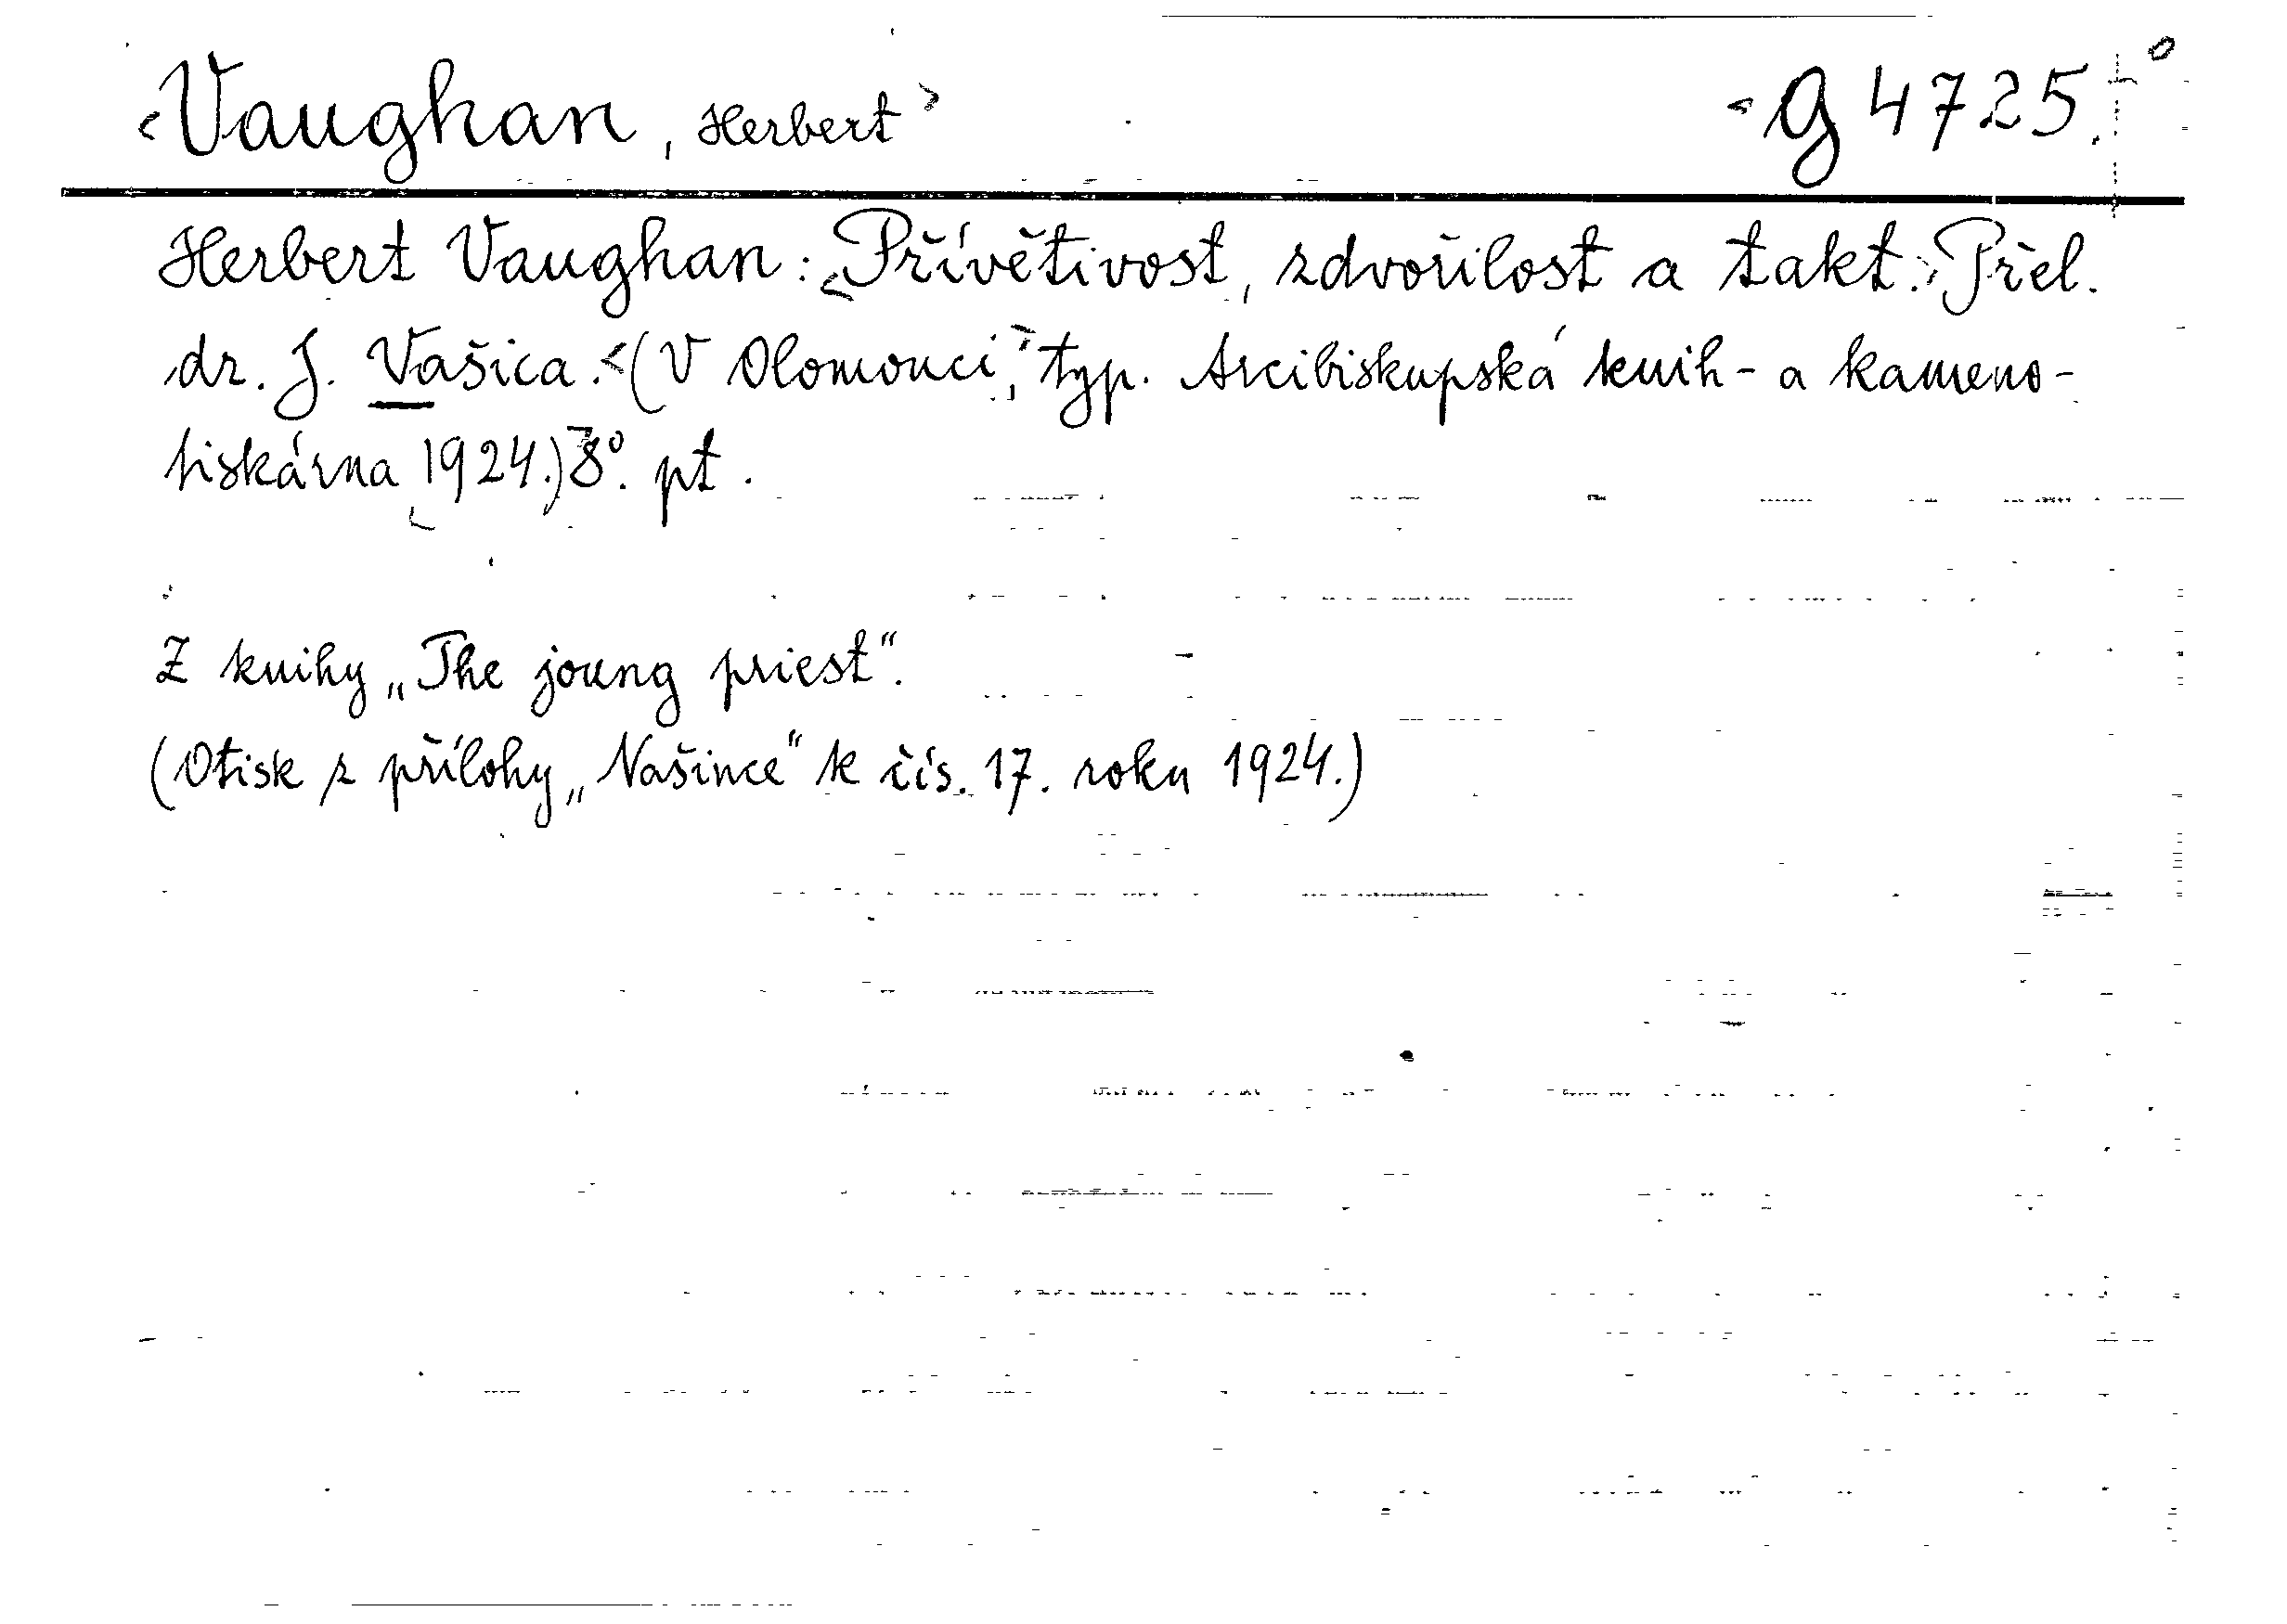 <Vaughan, Herbert> <g 4725.+°
Herbert Vaughan: <Přívětivost, zdvořilost a takt.> Přel.
dr. J. Vašica. <(V Olomouci,> typ. Arcibiskupská knih- a kameno-
tiskárna <1924.)> 8°. pt.
Z knihy „The joung priest“.
(Otisk z přílohy „Našince“ k čís. 17. roku 1924.)